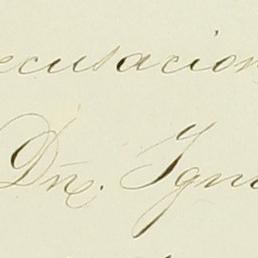 ecusacion
Dne. Igna